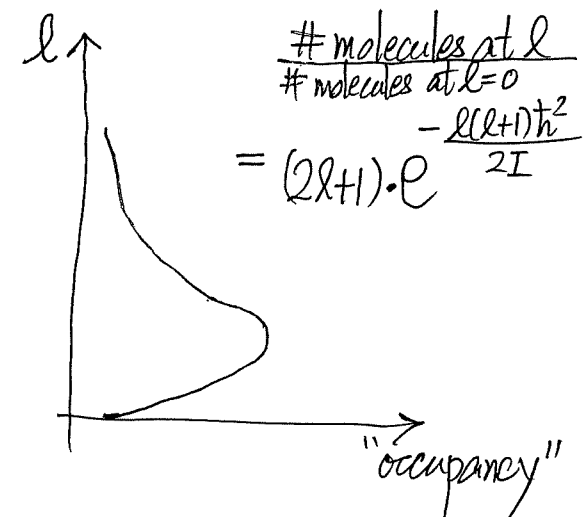 l
# molecules at l
# molecules at l=0
= (2l+1)·e^(-l(l+1)ħ²/2I)
"occupancy"